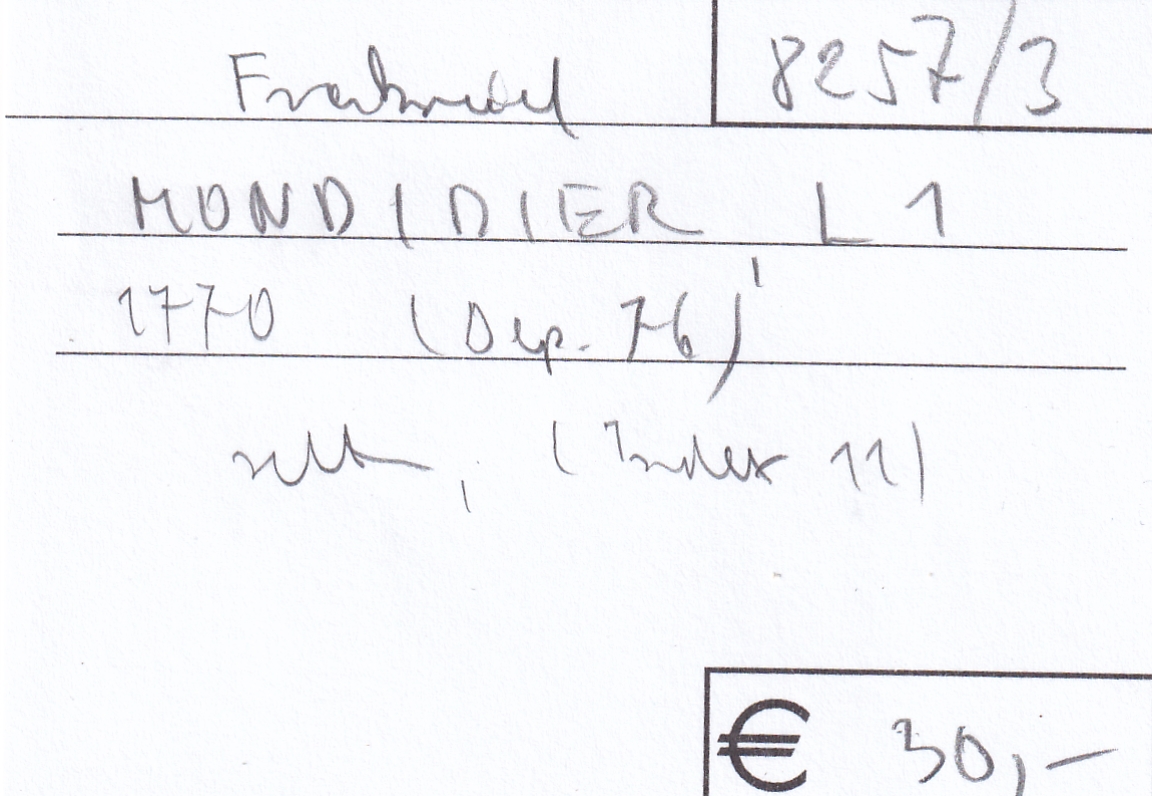 Frankreich 8257/3
MONDIDIER L 1
1770 (Dep. 76)
selten, (Index 11)
€ 30,-